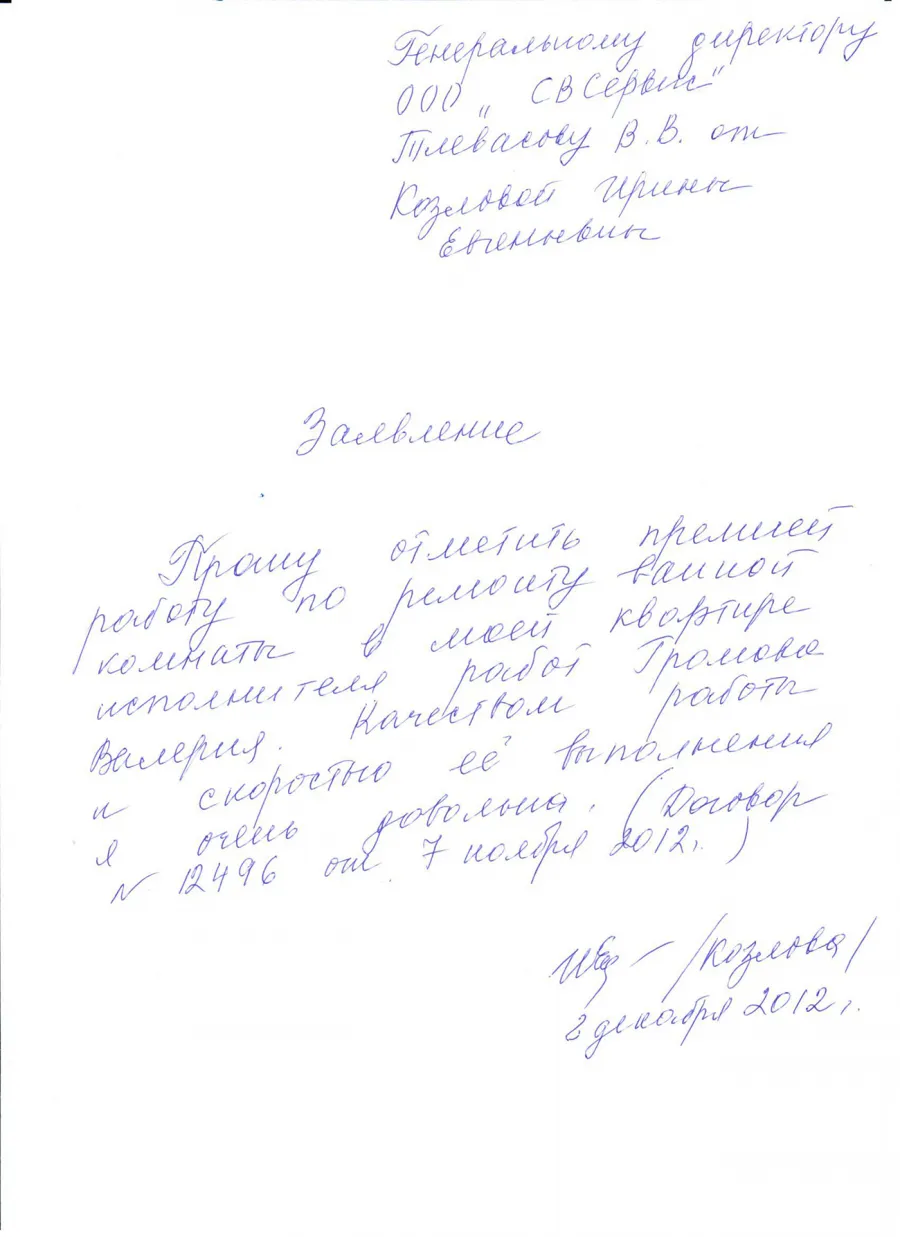 Генеральному директору
ООО „СВСервис"
Тлевасову В.В. от
Козловой Ирины
Евгеньевны
Заявление
Прошу отметить премией
работу по ремонту ванной
комнаты в моей квартире
исполнителя работ Громова
Валерия. Качеством работы
и скоростью её выполнения
я очень довольна. (Договор
№ 12496 от 7 ноября 2012г.)
/Козлова/
2 декабря 2012г.